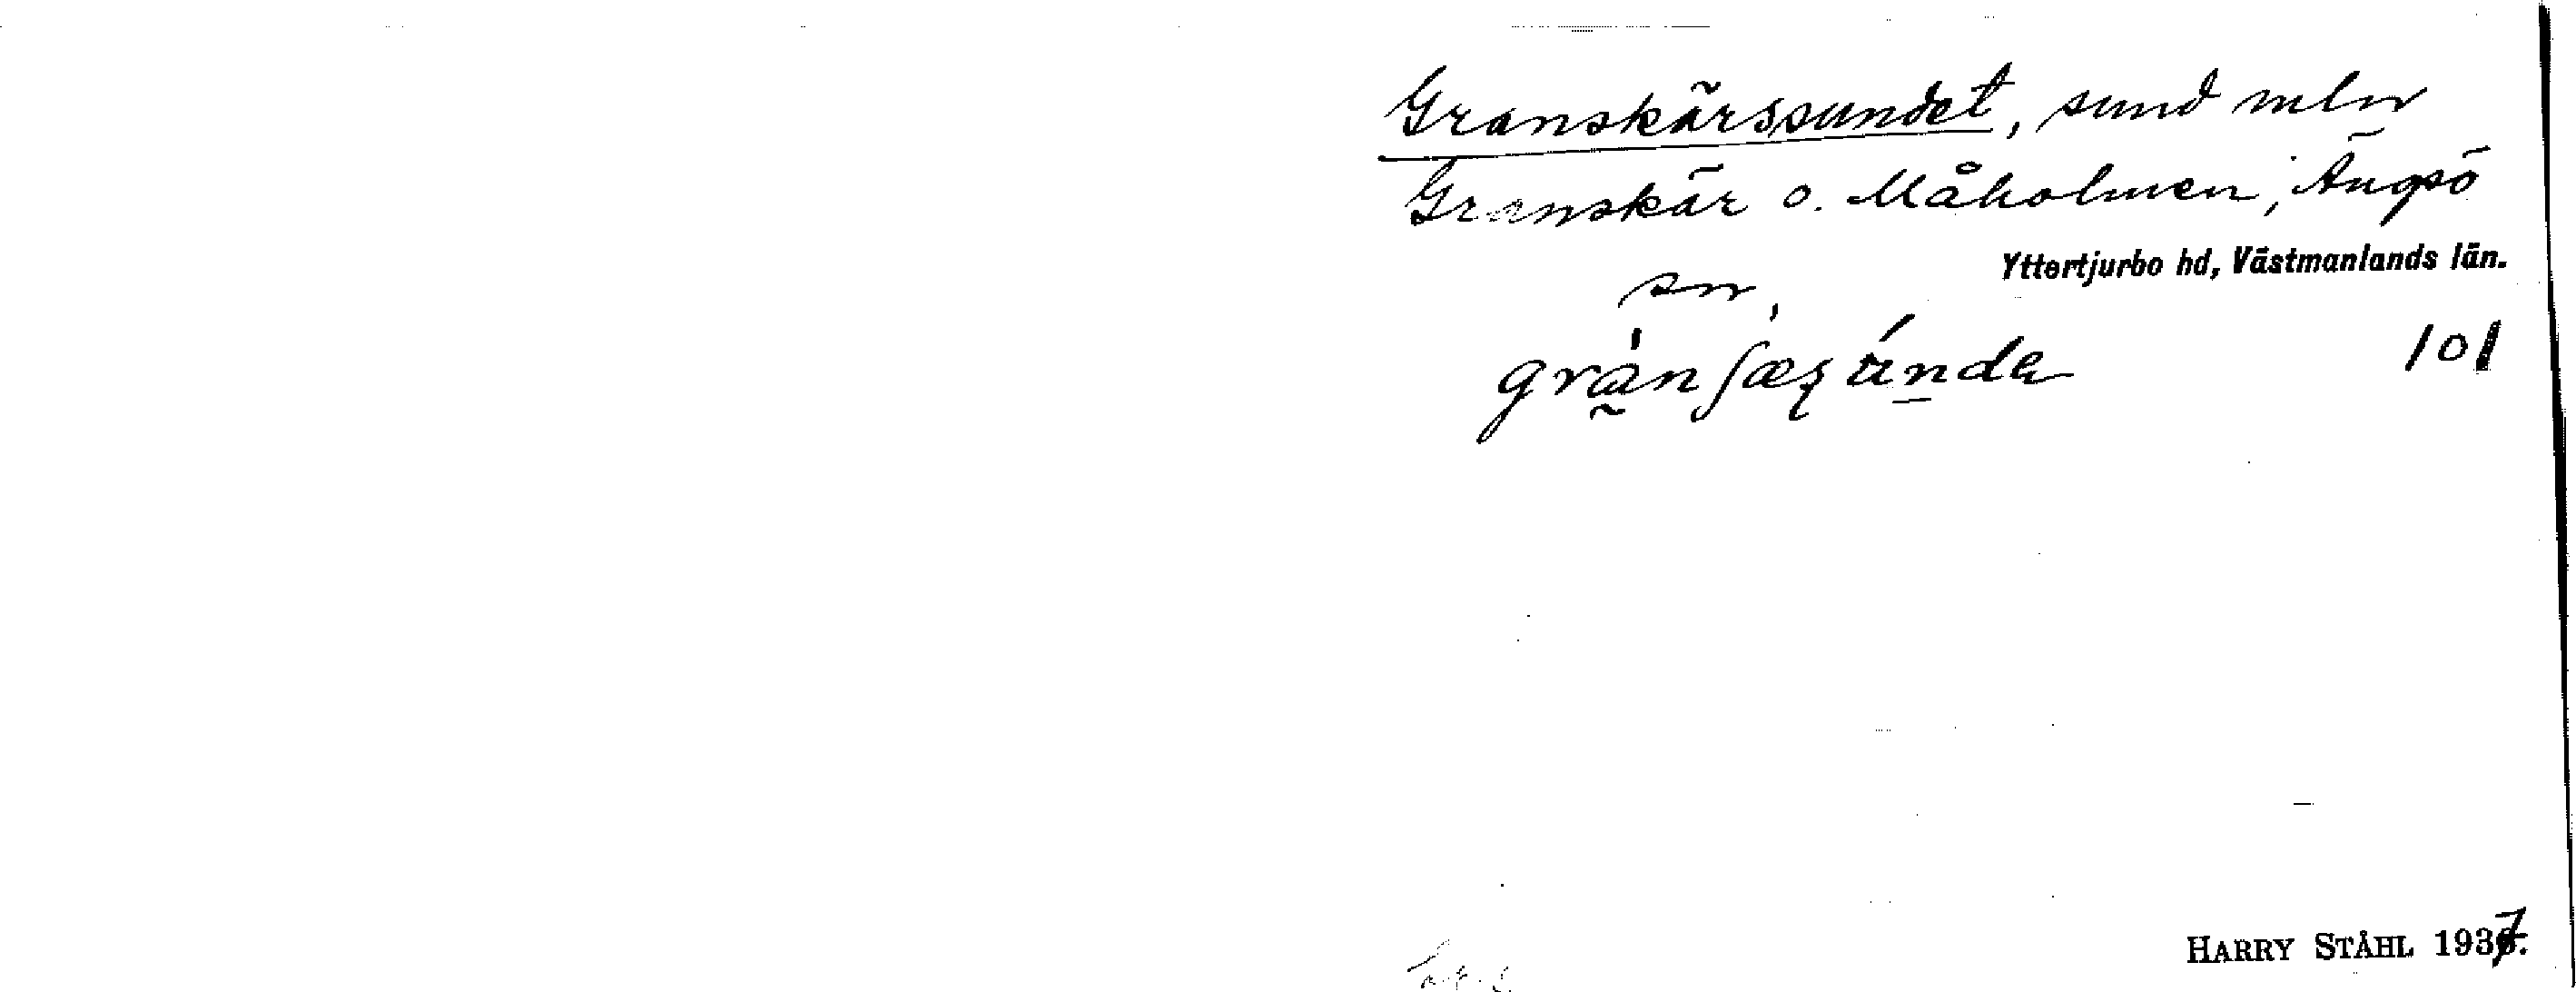 Granskärssundet, sund mln
Granskär o. Måholmen, Ängsö
sn,
Yttertjurbo hd, Västmanlands län.
101
HARRY STÅHL 1937.